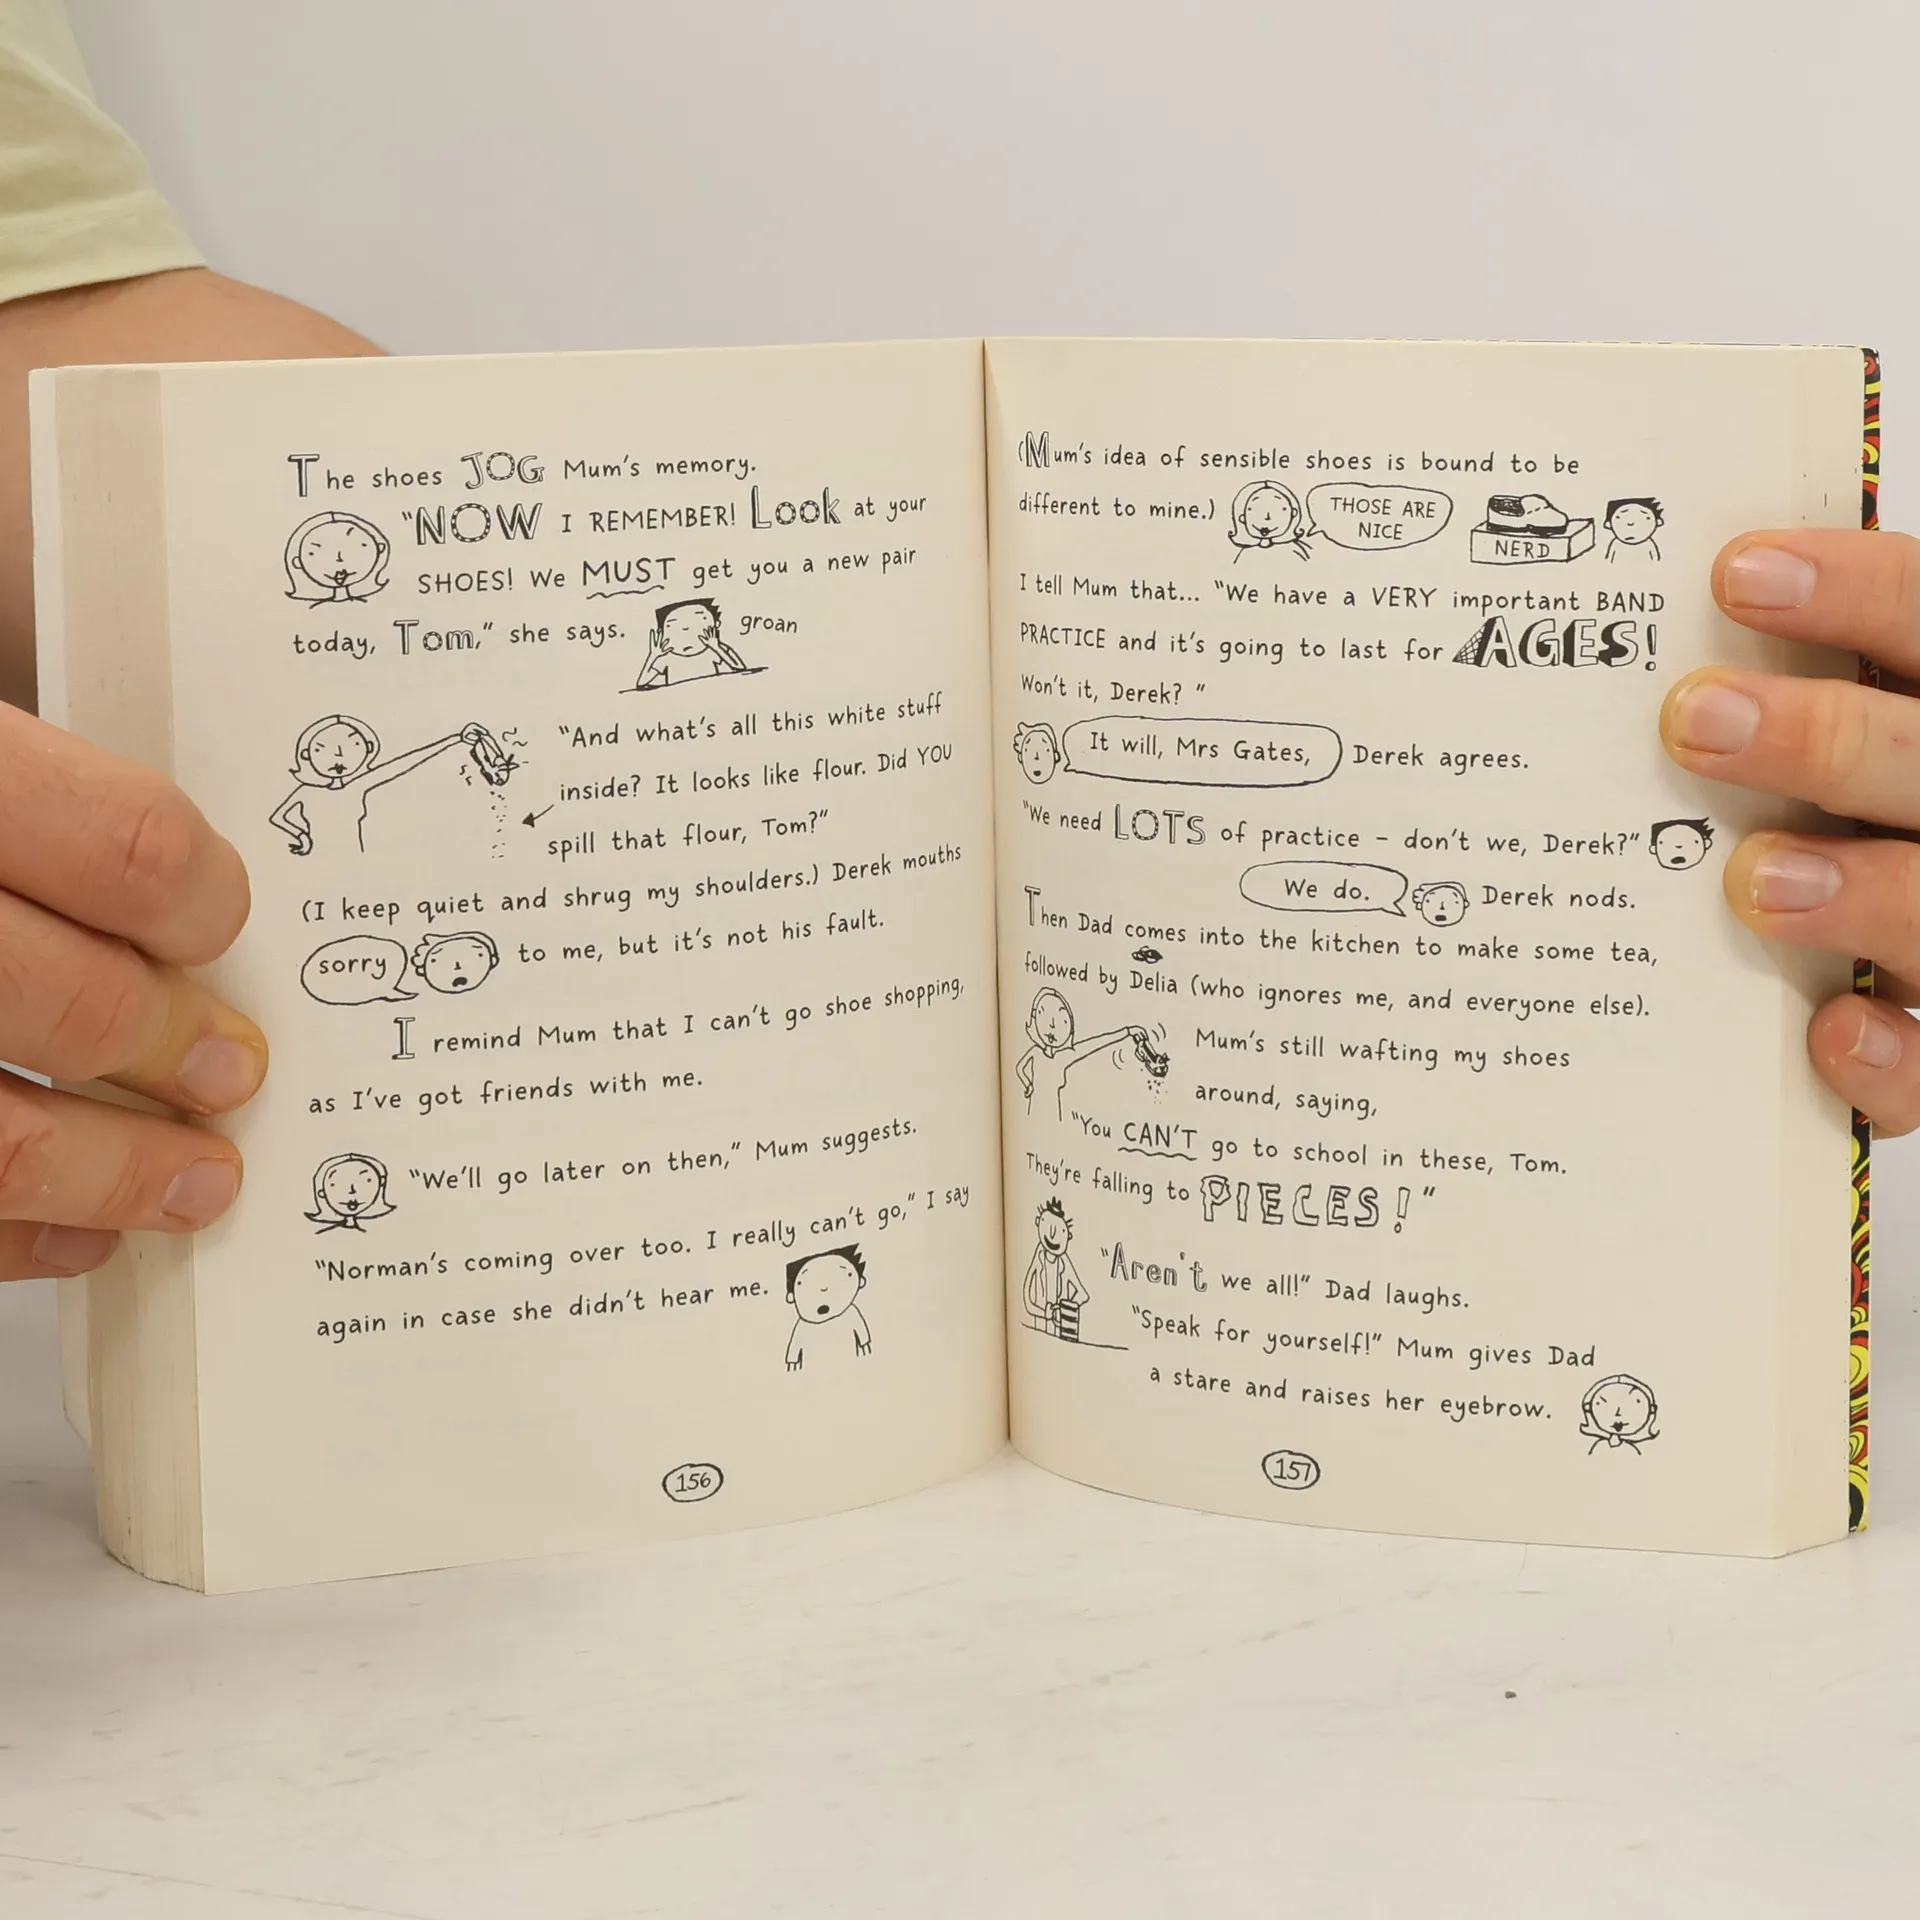 The shoes JOG Mum's memory.
"NOW I REMEMBER! Look at your
SHOES! We MUST get you a new pair
today, Tom," she says.
groan
"And what's all this white stuff
inside? It looks like flour. Did YOU
spill that flour, Tom?"
(I keep quiet and shrug my shoulders.) Derek mouths
sorry to me, but it's not his fault.
I remind Mum that I can't go shoe shopping,
as I've got friends with me.
"We'll go later on then," Mum suggests.
"Norman's coming over too. I really can't go," I say
again in case she didn't hear me.
156
(Mum's idea of sensible shoes is bound to be
different to mine.)
THOSE ARE
NICE
NERD
I tell Mum that... "We have a VERY important BAND
PRACTICE and it's going to last for AGES!
Won't it, Derek? "
It will, Mrs Gates, Derek agrees.
"We need LOTS of practice – don't we, Derek?"
We do. Derek nods.
Then Dad comes into the kitchen to make some tea,
followed by Delia (who ignores me, and everyone else).
Mum's still wafting my shoes
around, saying,
"You CAN'T go to school in these, Tom.
They're falling to PIECES!"
"Aren't we all!" Dad laughs.
"Speak for yourself!" Mum gives Dad
a stare and raises her eyebrow.
157